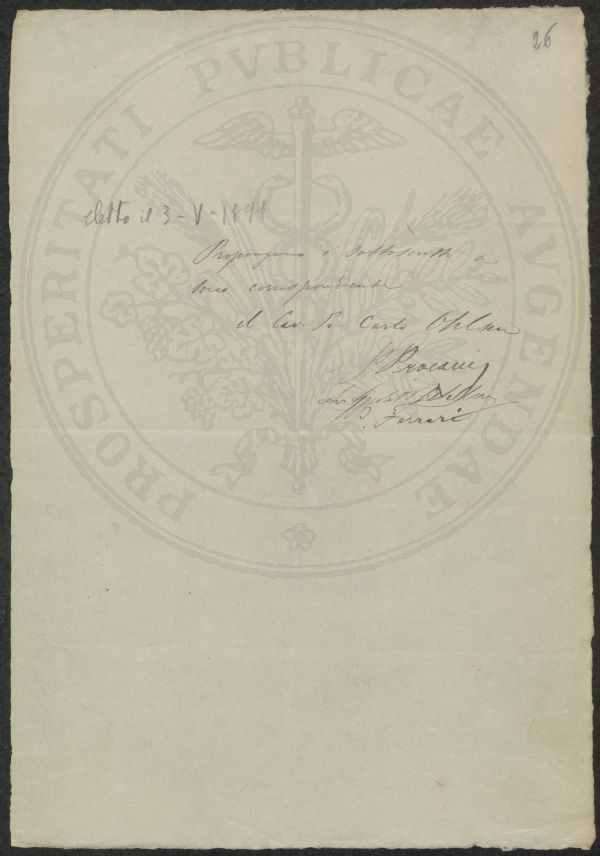 26
PROSPERITATI PVBLICAE AVGENDAE
eletto il 3-V-1891
Propongono i sottoscritti a
socio corrispondente
il Cav. Carlo Ohlsen
P. Ferrari